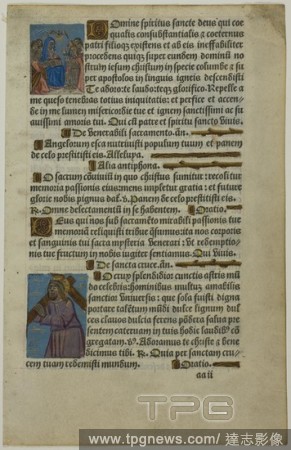 Domine spiritus sancte deus qui coe
qualis consubstantialis & coeternus
patri filioqȝ existens et ab eis ineffabiliter
procedens quiqȝ super eundem dominū no
strum iesum christum in specie columbe & su
per apostolos in linguis igneis descendisti
Te adoro: te laudo: teqȝ glorifico. Repelle a
me queso tenebras totius iniquitatis: et perfice et accen
de in me lumen misericordie tue et ignem sanctissimi ac su
avissimi amoris tui. Qui cū patre et spiritu sancto vivis.
De venerabili sacramento. añ.
Angelorum esca nutriuisti populum tuum et panem
de celo prestitisti eis. Alleluya.
Alia antiphona.
O sacrum cōuiuiū in quo christus sumitur: recolitur
memoria passionis eius: mens impletur gratia: et future
glorie nobis pignus dať. v. Panem de celo prestitisti eis.
R. Omne delectamentū in se habentem. Oratio.
Deus qui nobis sub sacramēto mirabili passionis tue
memoriā reliquisti tribue q̄sumus: ita nos corporis
et sanguinis tui sacra mysteria venerari: vt redemptio
nis tue fructum in nobis iugiter sentiamus. Qui viuis.
De sancta cruce. añ.
O crux splendidior cunctis astris mū
do celebris: hominibus multuȝ amabilis
sanctior vniuersis: que sola fuisti digna
portare talētuȝ mūdi dulce lignum dul
ces clauos dulcia ferens pōdera salua pre
sentem cateruam in tuis hodie laudibꝰ cō
gregatam. v. Adoramus te christe & bene
dicimus tibi. R. Quia per sanctam cru
cem tuam redemisti mundum. Oratio.
aa ii
TPG
www.tpgnews.com 達志影像